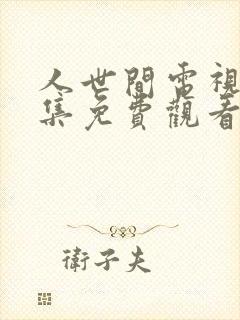 人世間電視
集免費觀看
衛子夫